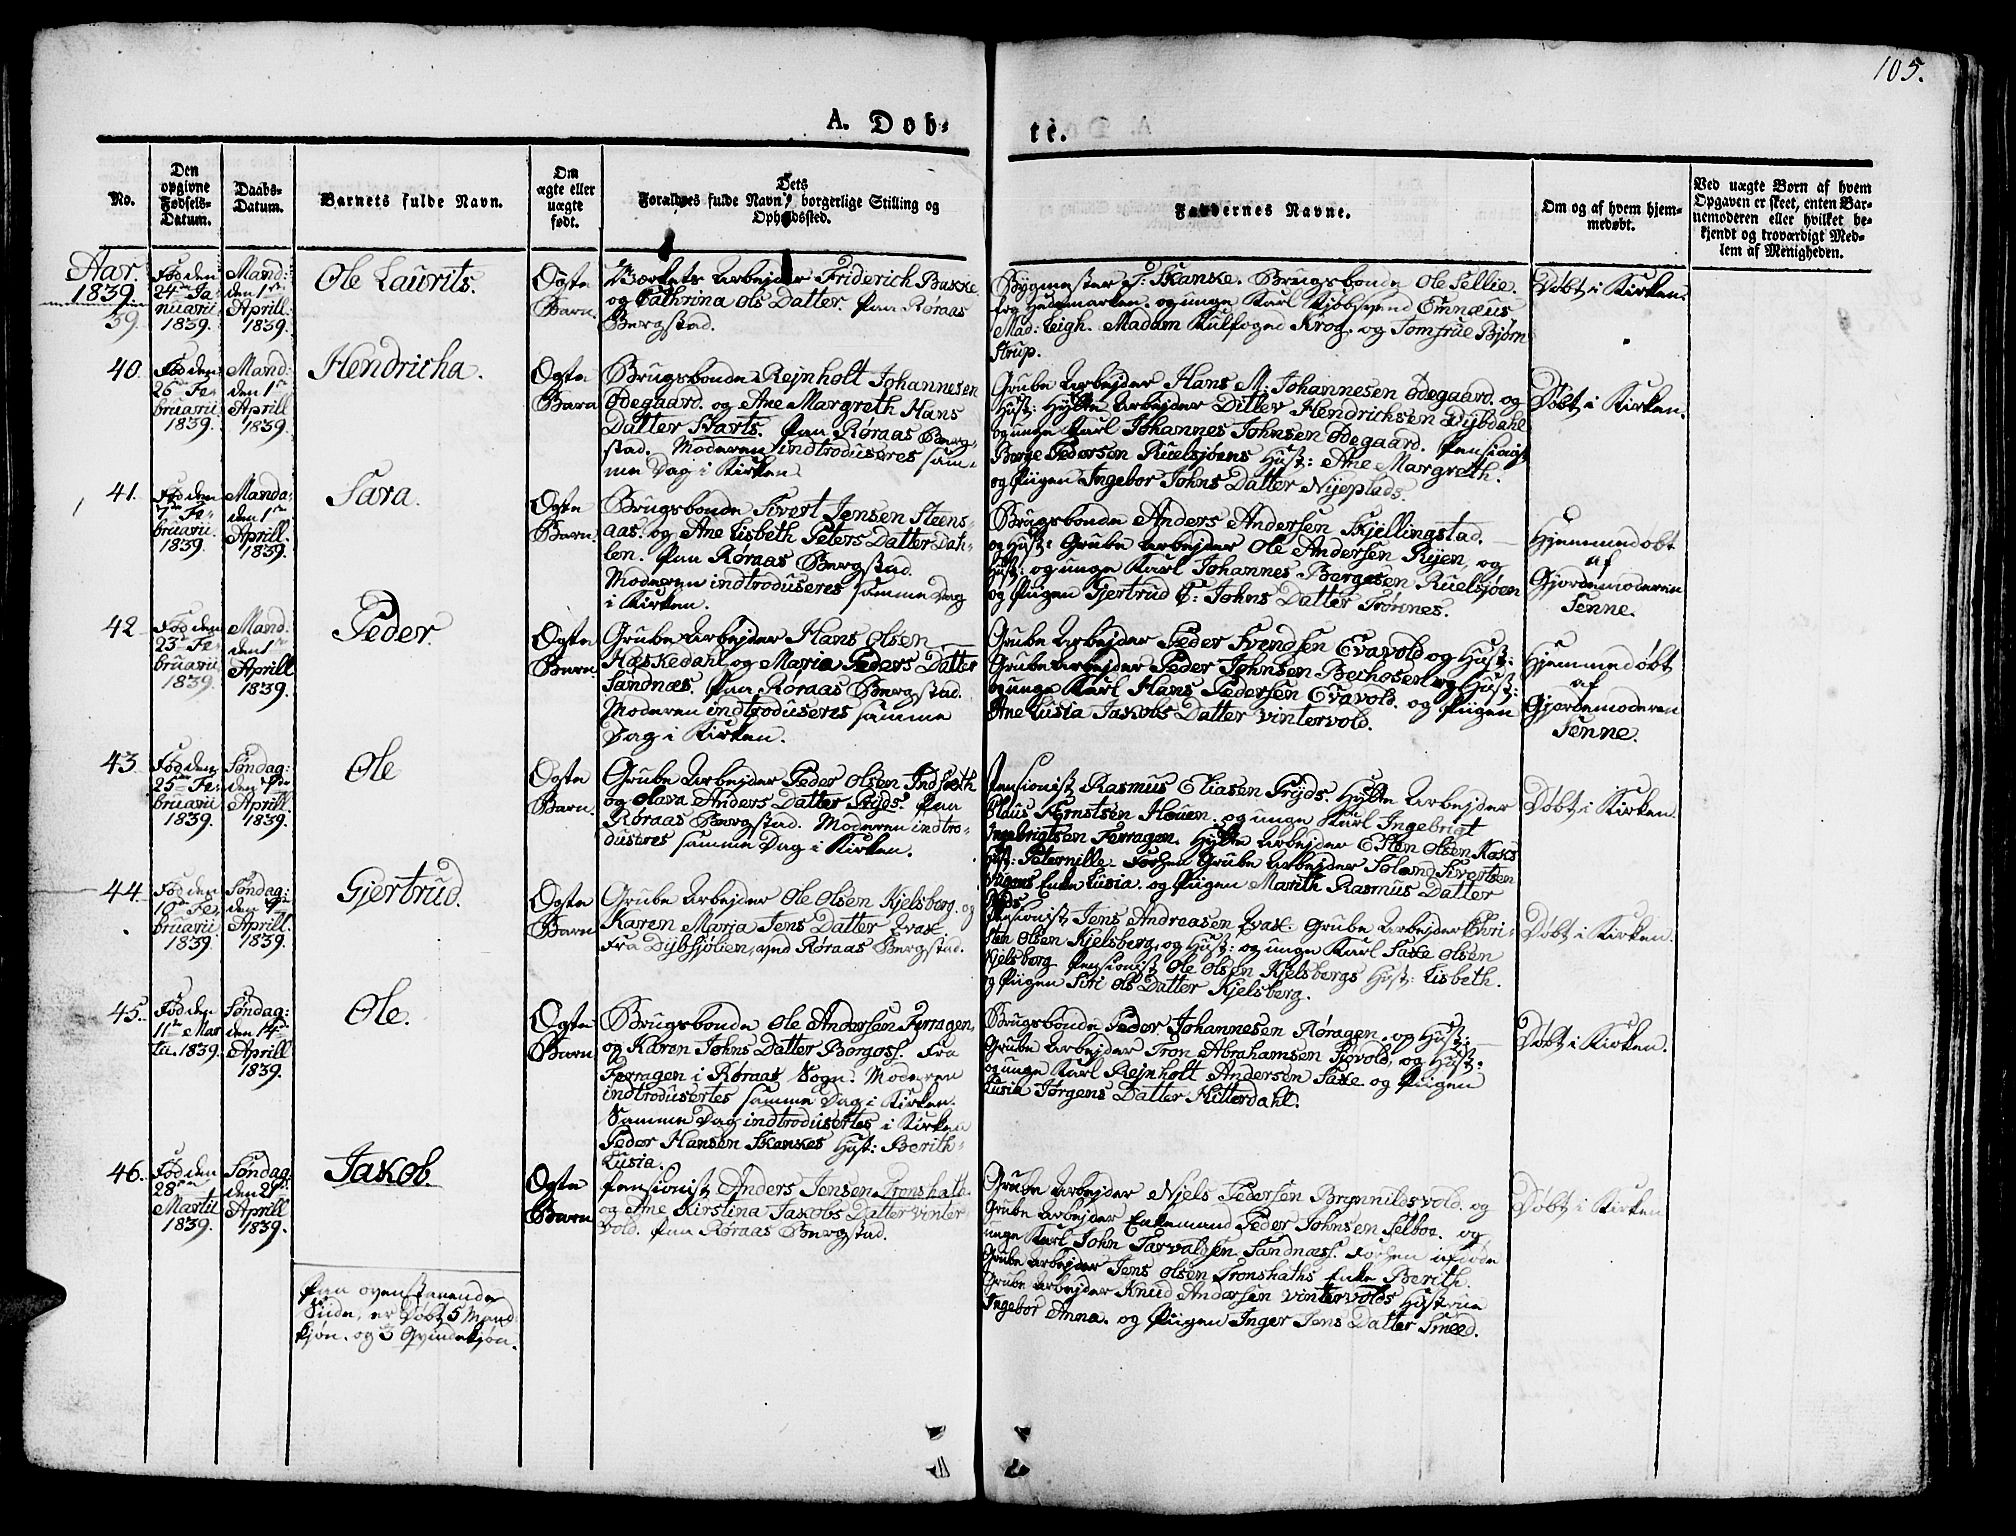 105.
A. Døb-
te.
No.
Den
opgivne
Fødsels-
Datum.
Daabs-
Datum.
Barnets fulde Navn.
Om
ægte eller
uægte
født.
Dets
Forældres fulde Navn, borgerlige Stilling og
Opholdssted.
Faddernes Navne.
Om og af hvem hjem-
medøbt.
Ved uægte Børn af hvem
Opgaven er skeet, enten Bar-
nemoderen eller hvilket be-
kjendt og troværdigt Med-
lem af Menigheden.
Aar.
1839
39.
Fød den
24de Ja-
nuarii
1839.
Mand:
den 1ste
Aprill
1839.
Ole Laurits.
Ægte
Barn.
Værkets Arbejder Friderich Bakke
og Cathrina Ols Datter. Paa Røraas
Bergstad.
Bygmester P: Skanke. Brugsbonde Ole Sellie
fra Hedemarken. og unge Karl Kjøbsvend Emnæus
Mad: Leigh. Madam Kulfoged Krog. og Jomfrue Bjørn
strup.
Døbt i Kirken.
40.
Fød den
26de Fe-
bruarii
1839.
Mand:
den 1ste
Aprill
1839.
Hendricha.
Ægte
Barn
Brugsbonde Rejnholt Johannesen
Ødegaard. og Ane Margreth Hans
Datter Harts. Paa Røraas Berg-
stad. Moderen indtroduseres sam-
me Dag i Kirken.
Grube Arbejder Hans M: Johannesen Ødegaard. og
Hust: Hytte Arbejder Ditlev Hendrichsen Dybdahl
og unge Karl Johannes Johnsen Ødegaard. Pensionist
Børge Pedersen Ruelsjøens Hust: Ane Margreth.
og Piigen Ingebor Johns Datter Nyeplads.
Døbt i Kirken.
41.
Fød den
7de Fe-
bruarii
1839.
Manda:
den 1ste
Aprill.
1839.
Sara.
Ægte
Barn.
Brugsbonde Sivert Jensen Steens-
aas. og Ane Lisbeth Peters Datter Dah-
len. Paa Røraas Bergstad.
Moderen indtroduseres samme Dag
i Kirken.
Brugsbonde Anders Andersen Skjellingstad.
og Hust: Grube Arbejder Ole Andersen Ryen, og
Hust: og unge Karl Johannes Børgesen Ruelsjøen
og Piigen Gjertrud E: Johns Datter Trønnes.
Hjemmedøbt
af
Gjordemoderen
Senne.
42
Fød den
23de Fe-
bruarii
1839.
Mand:
den 1ste
Aprill
1839.
Peder.
Ægte
Barn
Grube Arbejder Hans Olsen
Haskedahl og Maria Peders Datter
Sandnæs. Paa Røraas Bergstad.
Moderen indtroduseres samme
Dag i Kirken.
Grube Arbejder Peder Svendsen Evavold og Hust:
Grube Arbejder Peder Johnsen Bechosen og Hust:
og unge Karl Hans Pedersen Evavold. og Piigen
Ane Lusia Jakobs Datter Vintervold.
Hjemmedøbt
af
Gjordemoderen
Senne.
43
Fød den
25de Fe-
bruarii
1839.
Søndag:
den 7de
Aprill.
1839.
Ole
Ægte
Barn.
Grube Arbejder Peder Olsen Indsæth
og Olava Anders Datter Pryds. Paa
Røraas Bergstad. Moderen indtro-
duseres samme Dag i Kirken.
Pensionist Rasmus Eliasen Pryds. Hytte Arbejder
Claus Ernstsen Houen. og unge Karl Ingebrigt
Ingebrigtsen Ferragen. Hytte Arbejder Esten Olsen Næss
Hust: Peternille. Forhen Grube Arbejder Soland Sivertsen
Vagens Enke Lusia. og Piigen Marith Rasmus Datter
Pryds.
Døbt i Kirken.
44.
Fød den
18de Fe-
bruarii
1839.
Søndag:
den 7de
Aprill.
1839.
Gjertrud.
Ægte
Barn
Grube Arbejder Ole Olsen Kjelsberg. og
Karen Marja Jens Datter Evax
Fra Dybsjølien, ved Røraas Bergstad.
Pensionist Jens Andreasen Evax. Grube Arbejder Chri-
sten Olsen Kjelsberg, og Hust: og unge Karl Saxe Olsen
Kjelsberg Pensionist Ole Olsen Kjelsbergs Hust: Lisbeth.
og Piigen Siri Ols Datter Kjelsberg.
Døbt i Kirken.
45.
Fød den
11te Mar
tii. 1839.
Søndag:
den 14de
Aprill
1839.
Ole.
Ægte
Barn
Brugsbonde Ole Andersen Ferragen,
og Karen Johns Datter Borgos. Fra
Ferragen i Røraas Sogn. Moderen
indtrodusertes samme Dag i Kirken.
Samme Dag indtrodusertes i Kirken
Peder Hansen Skankes Hust: Berith-
Lusia.
Brugsbonde Peder Johannesen Røragen. og Hust:
Grube Arbejder Tron Abrahamsen Evavold, og Hust:
og unge Karl Rejnholt Andersen Saxe og Piigen
Lusia Jørgens Datter Hitterdahl.
Døbt i Kirken.
46.
Fød den
28de
Martii
1839.
Søndag
den 21de
Aprill
1839.
Jakob.
Ægte
Barn
Pensionist Anders Jensen Tronshath.
og Ane Kirstina Jakobs Datter Vinter
vold. Paa Røraas Bergstad.
Grube Arbejder Njels Pedersen Brynnildsvold. og
Grube Arbejder Enkemand Peder Johnsen Selboe. og
unge Karl John Tarvaldsen Sandnæs. Forhen afdøde
Grube Arbejder Jens Olsen Tronshaths Enke Berith.
Grube Arbejder Knud Andersen Vintervolds Hustrue
Ingebor Anna. og Piigen Inger Jens Datter Smeed.
Døbt i Kirken
Paa ovenstaaende
Siide, er Døbt 5 Mand
kjøn. og 3 Qvindekjøn.